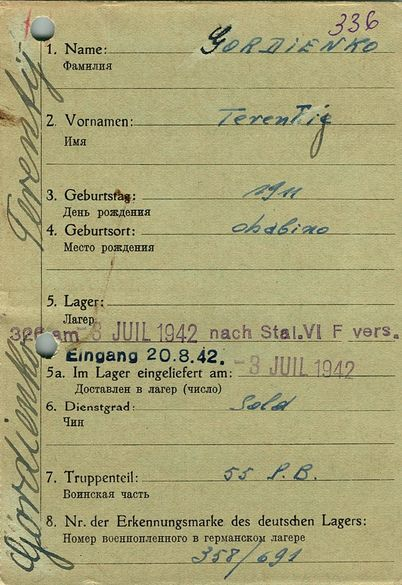 336
1. Name: GORDIENKO
Фамилия
2. Vornamen: Terentig
Имя
3. Geburtstag: 1911
День рождения
4. Geburtsort:
Место рождения
5. Lager:
Лагер
326 am -3 JUIL 1942 nach Stal. VI F vers.
Eingang 20.8.42. -3 JUIL 1942
5a. Im Lager eingeliefert am:
Доставлен в лагер (число)
6. Dienstgrad: Sold
Чин
7. Truppenteil: 55 P.B.
Воинская часть
8. Nr. der Erkennungsmarke des deutschen Lagers:
Номер военнопленного в германском лагере
358/691
Gordienko Terentij